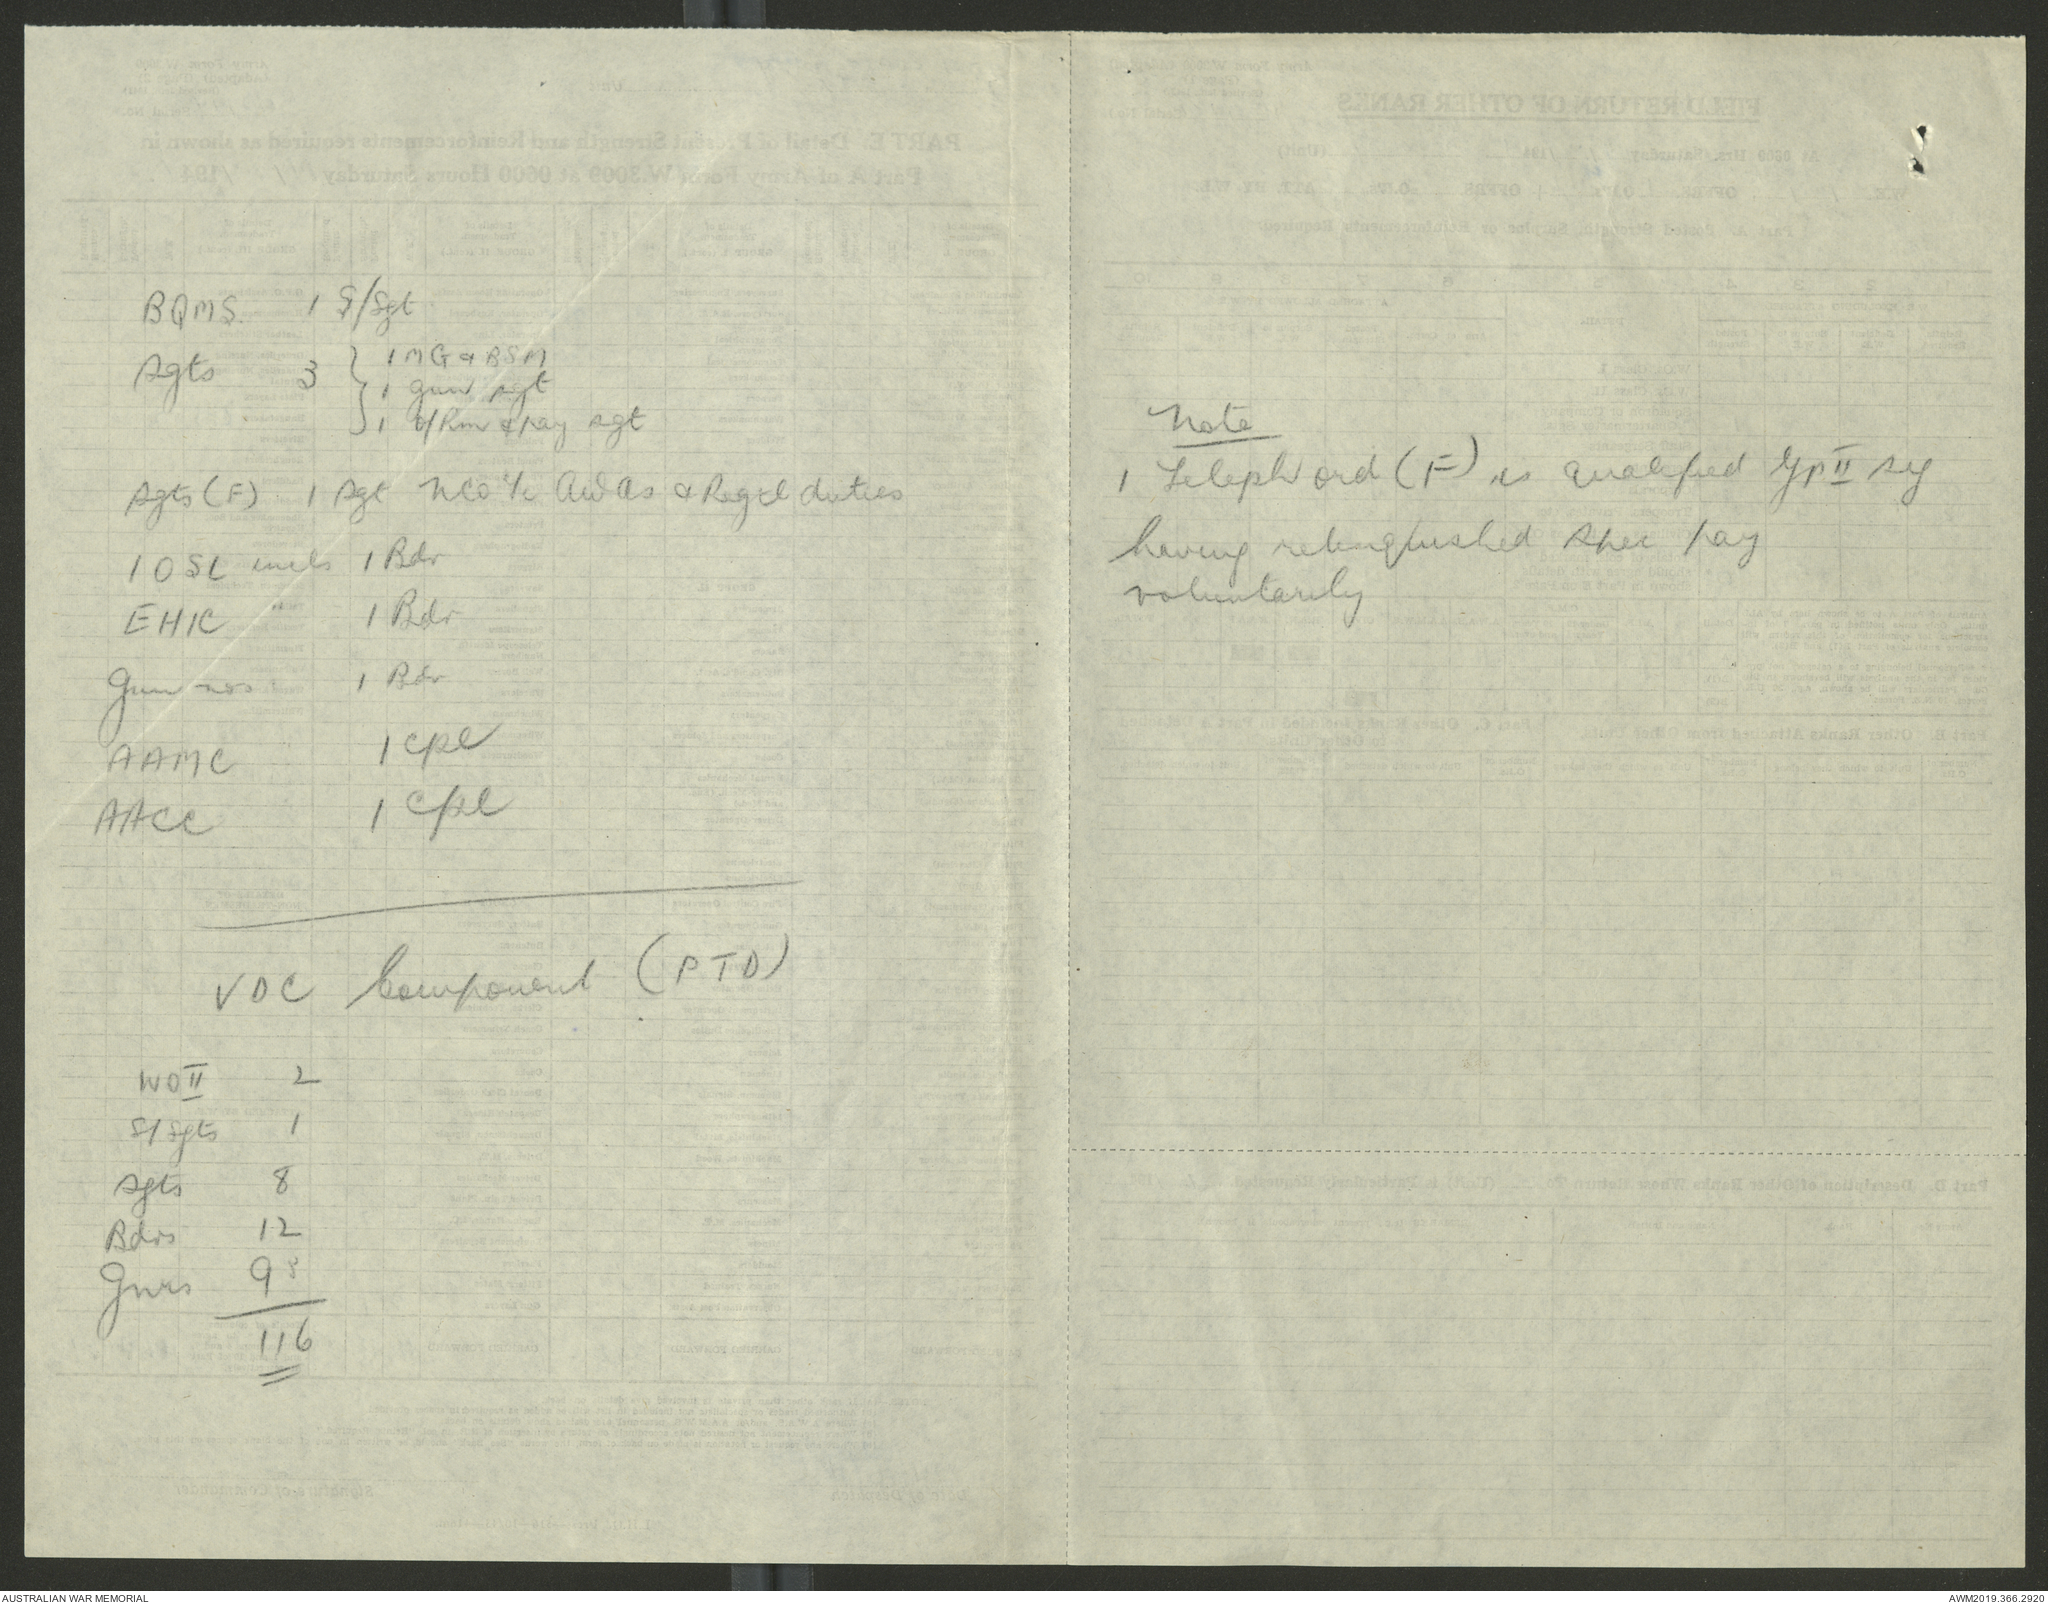 BQMS. 1 S/Sgt
Sgts 3 1 MG & BSM
1 gun sgt
1 O/Rm & pay sgt
Sgts (F) 1 Sgt NCO i/c AWAS & Regtl duties
1 OSL incls 1 Bdr
EHIC 1 Bdr
Gun nos 1 Bdr
AAMC 1 cpl
AACC 1 cpl
VDC Component (PTD)
WO II 2
S/Sgts 1
Sgts 8
Bdrs 12
Gnrs 93
116
Note
1 Teleph ord (F) is qualified Gp II sig
having relinquished spec pay
voluntarily
AUSTRALIAN WAR MEMORIAL
AWM2019.366.2920